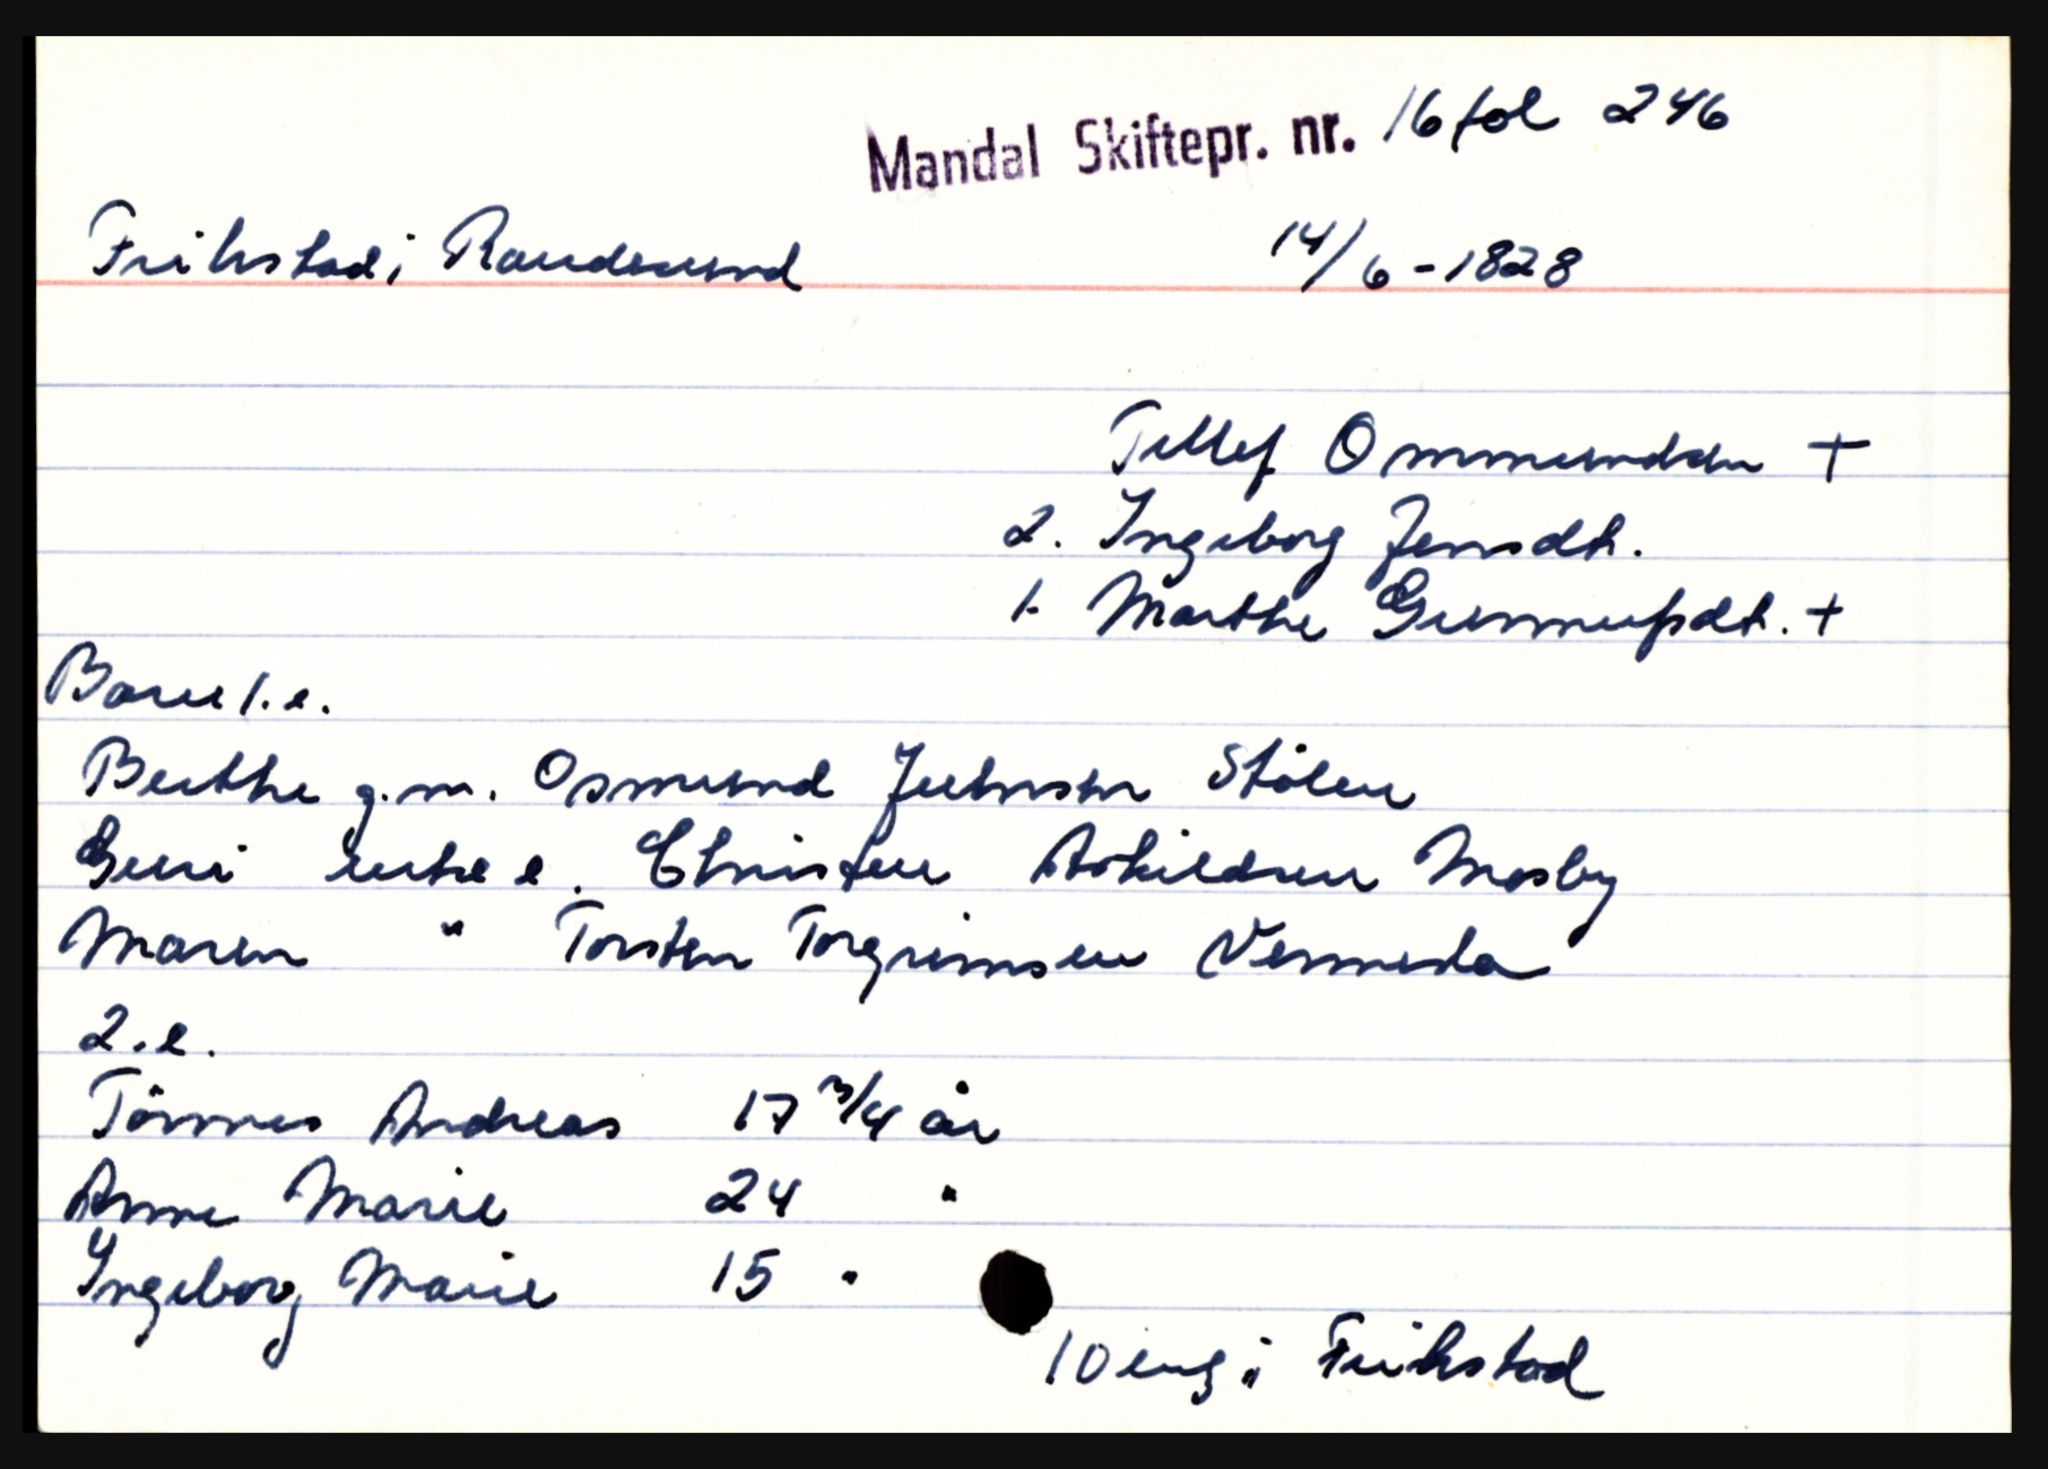 Mandal Skiftepr. nr. 16 fol 246
Frikstad i Randesund 14/6 - 1828
Tellef Ommundsen +
2. Ingeborg Jensdt.
1. Marthe Gunnufsdt. +
Barn 1. e.
Berthe g.m. Osmund Juelnsen Stölen
Guri enke e. Christen Askildsen Mosby
Maren " Torsten Torgrimsen Vennesla
2. e.
Tönnes Andreas 17 3/4 år
Anne Marie 24 "
Ingeborg Marie 15 "
10 eng i Frikstad